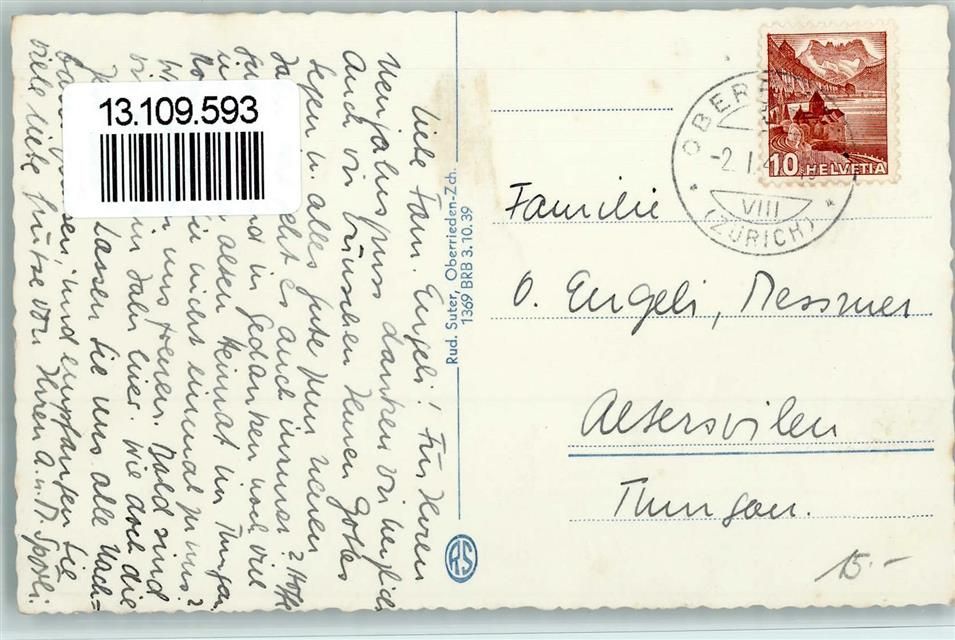 13.109.593
Liebe Fam. Engeli! Für Ihren
Neujahrsgruss danken wir herzlich
Auch wir wünschen Ihnen Gottes
Segen u. alles Gute zum neuen
geht es auch immer? Hoffe
sind in Gedanken noch viel
in alten Heimat im Thurgau
nicht einmal zu uns?
uns freuen. Bald sind
ein Jahr hier. Wie doch die
und empfangen Sie
Lassen Sie uns alle Nach=
viele liebe Grüsse von Ihren a. u. M. Spörli.
Rud. Suter, Oberrieden-Zch.
1369 BRB 3.10.39
RS
10 HELVETIA
OBER
-2. I. 4
VIII
(ZÜRICH)
Familie
O. Engeli, Messmer
Altersvilen
Thurgau.
15.-